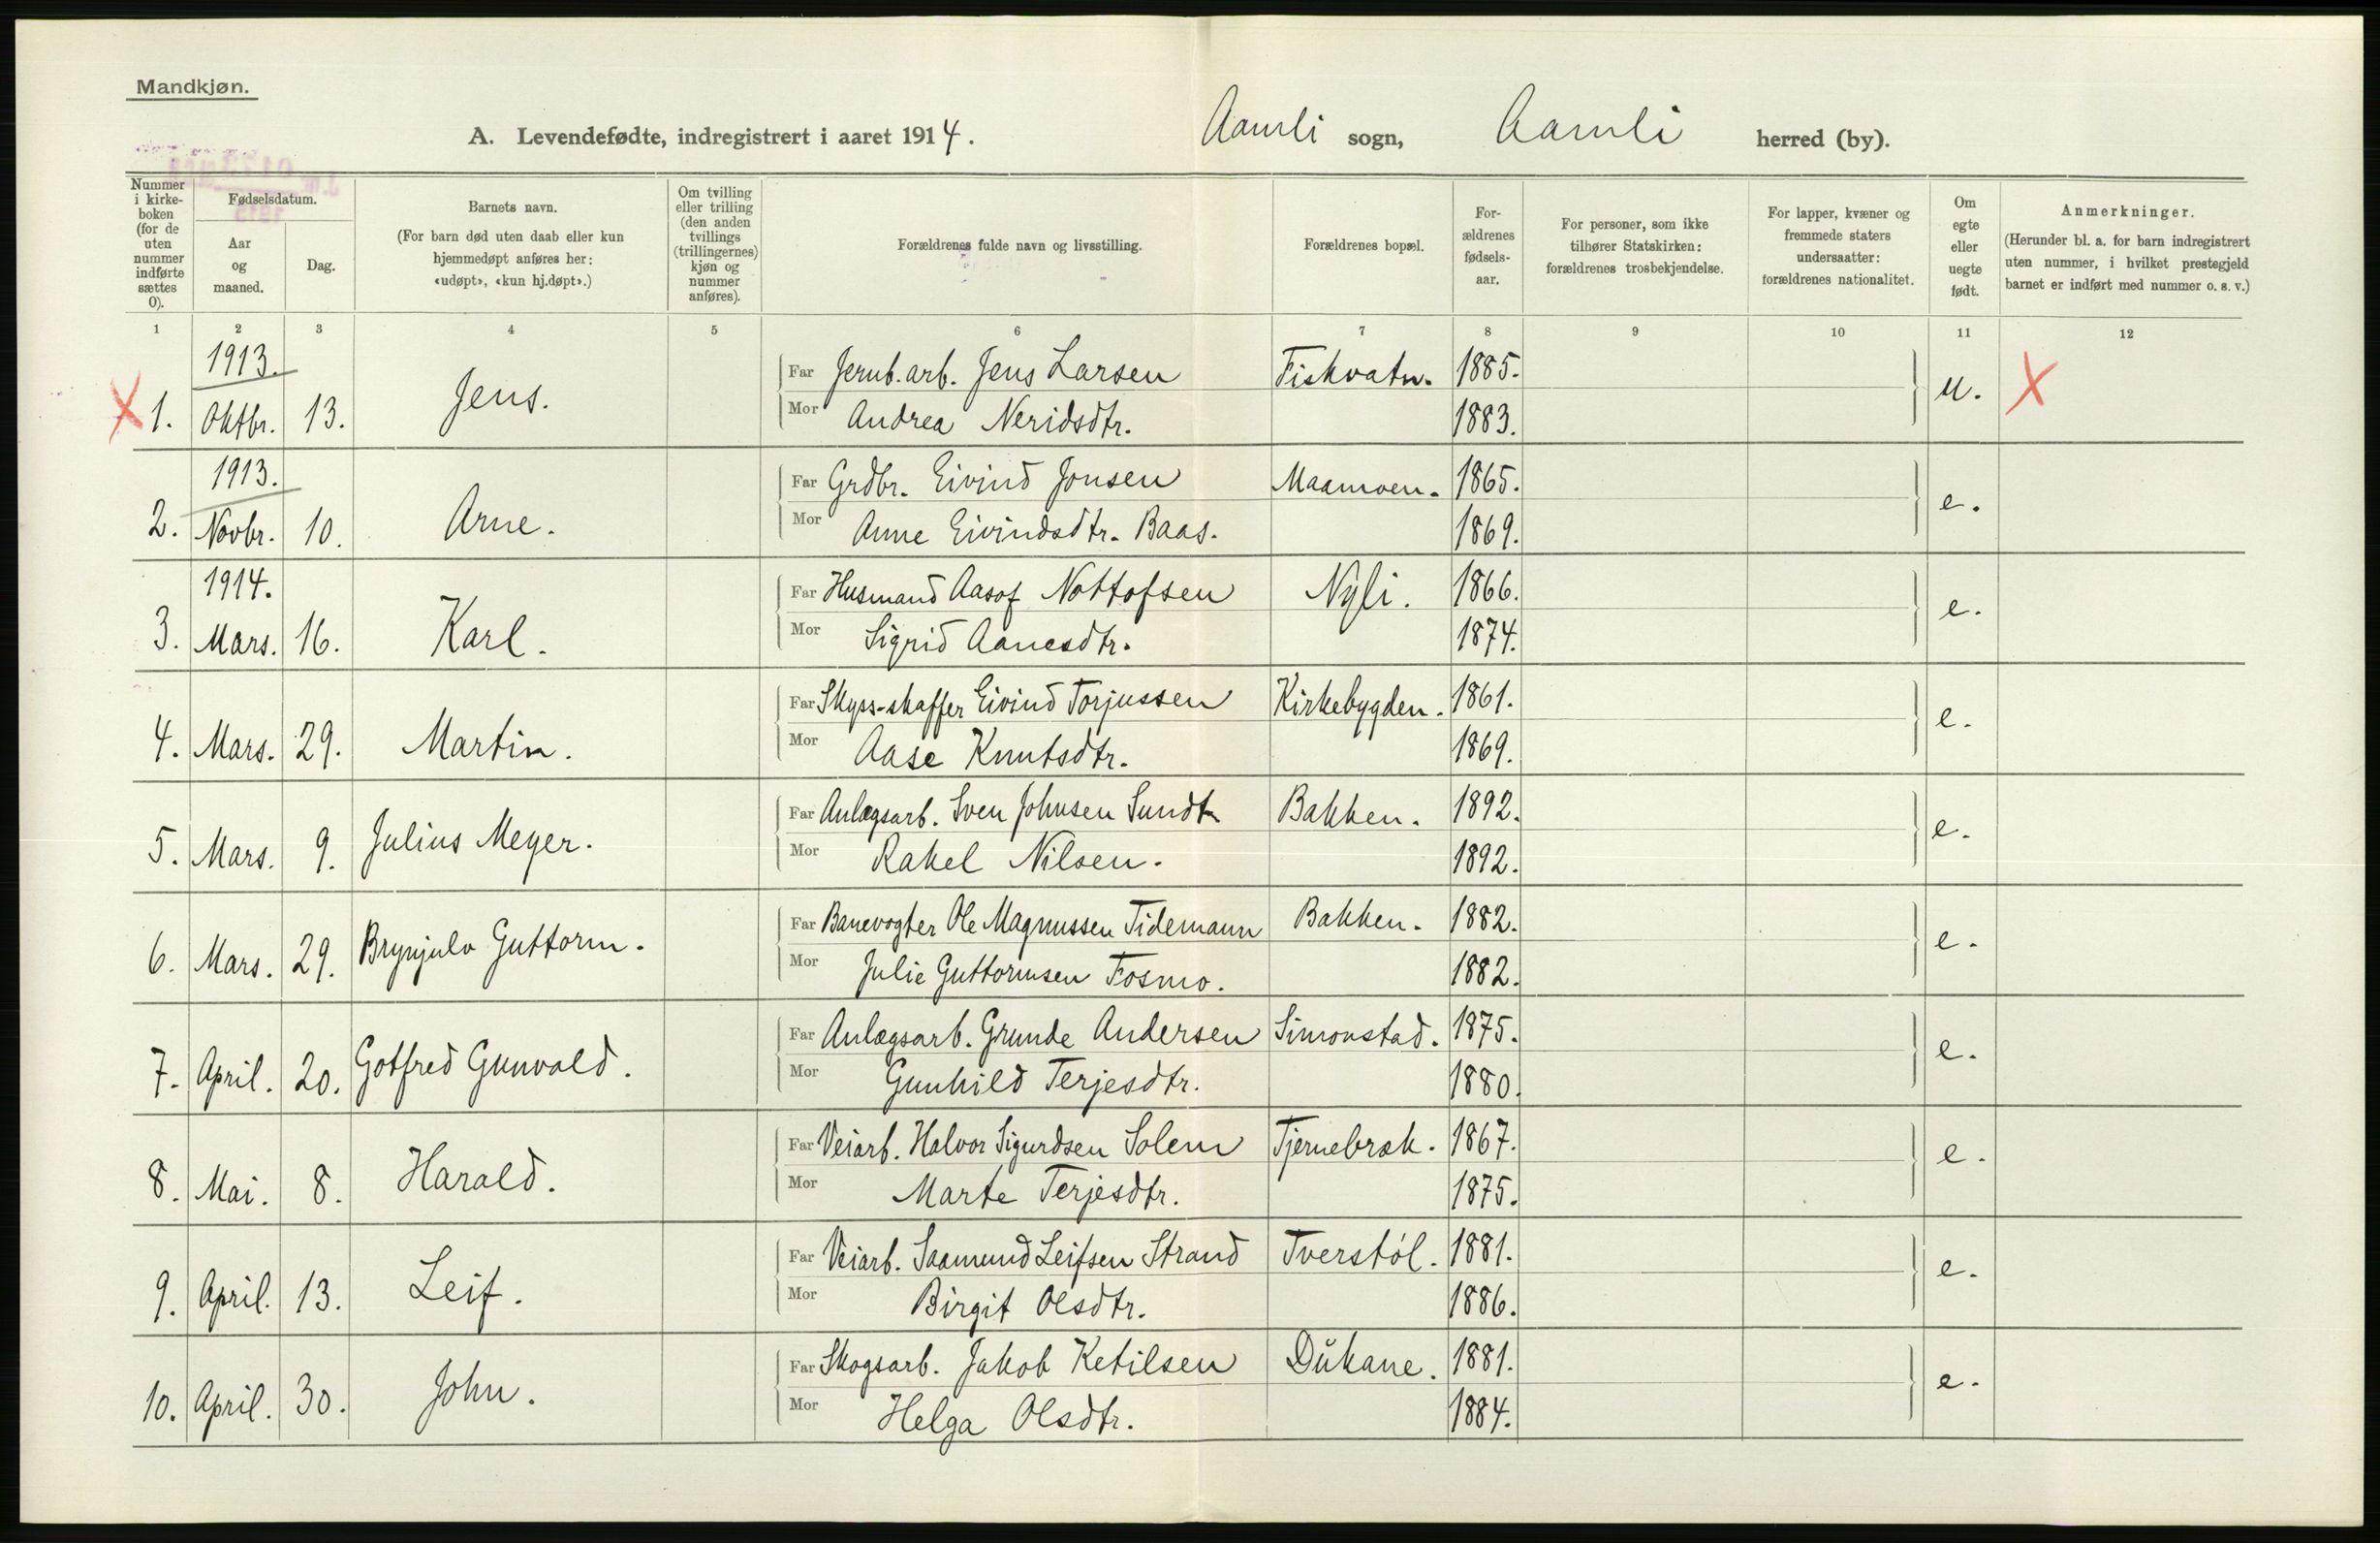 Mandkjøn.
A. Levendefødte, indregistrert i aaret 1914. Aamli sogn, Aamli herred (by).
Nummer i kirke-boken (for de uten nummer indførte sættes 0).
Fødselsdatum.
Aar og maaned.
Dag.
Barnets navn.
(For barn død uten daab eller kun hjemmedøpt anføres her: «udøpt», «kun hj.døpt».)
Om tvilling eller trilling (den anden tvillings (trillingernes) kjøn og nummer anføres).
Forældrenes fulde navn og livsstilling.
Forældrenes bopæl.
For-ældrenes fødsels-aar.
For personer, som ikke tilhører Statskirken: forældrenes trosbekjendelse.
For lapper, kvæner og fremmede staters undersaatter: forældrenes nationalitet.
Om egte eller uegte født.
Anmerkninger.
(Herunder bl. a. for barn indregistrert uten nummer, i hvilket prestegjeld barnet er indført med nummer o. s. v.)
1 2 3 4 5 6 7 8 9 10 11 12
1913.
X 1. Oktbr. 13. Jens. Far Jernb.arb. Jens Larsen Fiskvatn. 1885. u. X
Mor Andrea Neridsdtr. 1883.
1913.
2. Novbr. 10. Arne. Far Grdbr. Eivind Jonsen Maamoen. 1865. e.
Mor Anne Eivindsdtr. Baas. 1869.
1914.
3. Mars. 16. Karl. Far Husmand Aasof Nottofsen Nyli. 1866. e.
Mor Sigrid Aanesdtr. 1874.
4. Mars. 29. Martin. Far Skyss-skaffer Eivind Torjussen Kirkebygden. 1861. e.
Mor Aase Knutsdtr. 1869.
5. Mars. 9. Julius Meyer. Far Anlægsarb. Sven Johnsen Sundt Bakken. 1892. e.
Mor Rakel Nilsen. 1892.
6. Mars. 29. Brynjulv Guttorm. Far Banevogter Ole Magnussen Tidemann Bakken. 1882. e.
Mor Julie Guttormsen Fosmo. 1882.
7. April. 20. Gotfred Gunvald. Far Anlægsarb. Grunde Andersen Simonstad. 1875. e.
Mor Gunhild Terjesdtr. 1880.
8. Mai. 8. Harald. Far Veiarb. Halvor Sigurdsen Solem Tjernebræk. 1867. e.
Mor Marte Terjesdtr. 1875.
9. April. 13. Leif. Far Veiarb. Saamund Leifsen Strand Tverstøl. 1881. e.
Mor Birgit Olsdtr. 1886.
10. April. 30. John. Far Skogsarb. Jakob Ketilsen Dŭkane. 1881. e.
Mor Helga Olsdtr. 1884.